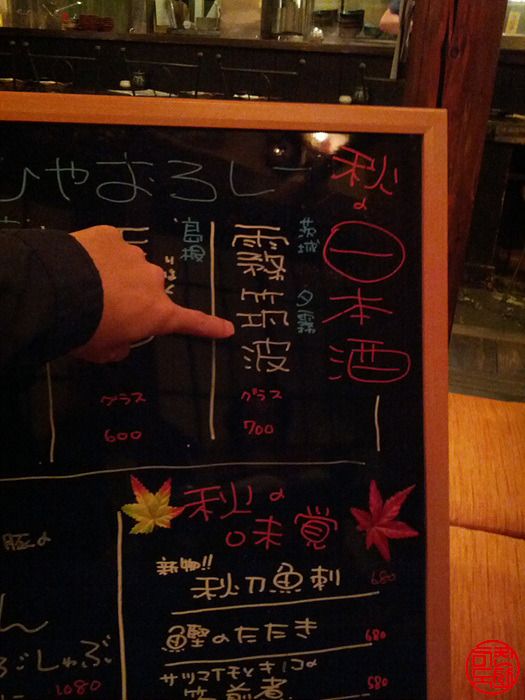 秋の
一本酒
ひやおろし
茨城
夕霧
霧筑波
グラス
700
島根
グラス
600
秋の
味覚
新物!!
秋刀魚刺
680
鰹のたたき
680
サツマイモとキノコの
580
豚の
ん
しゃぶ
1080